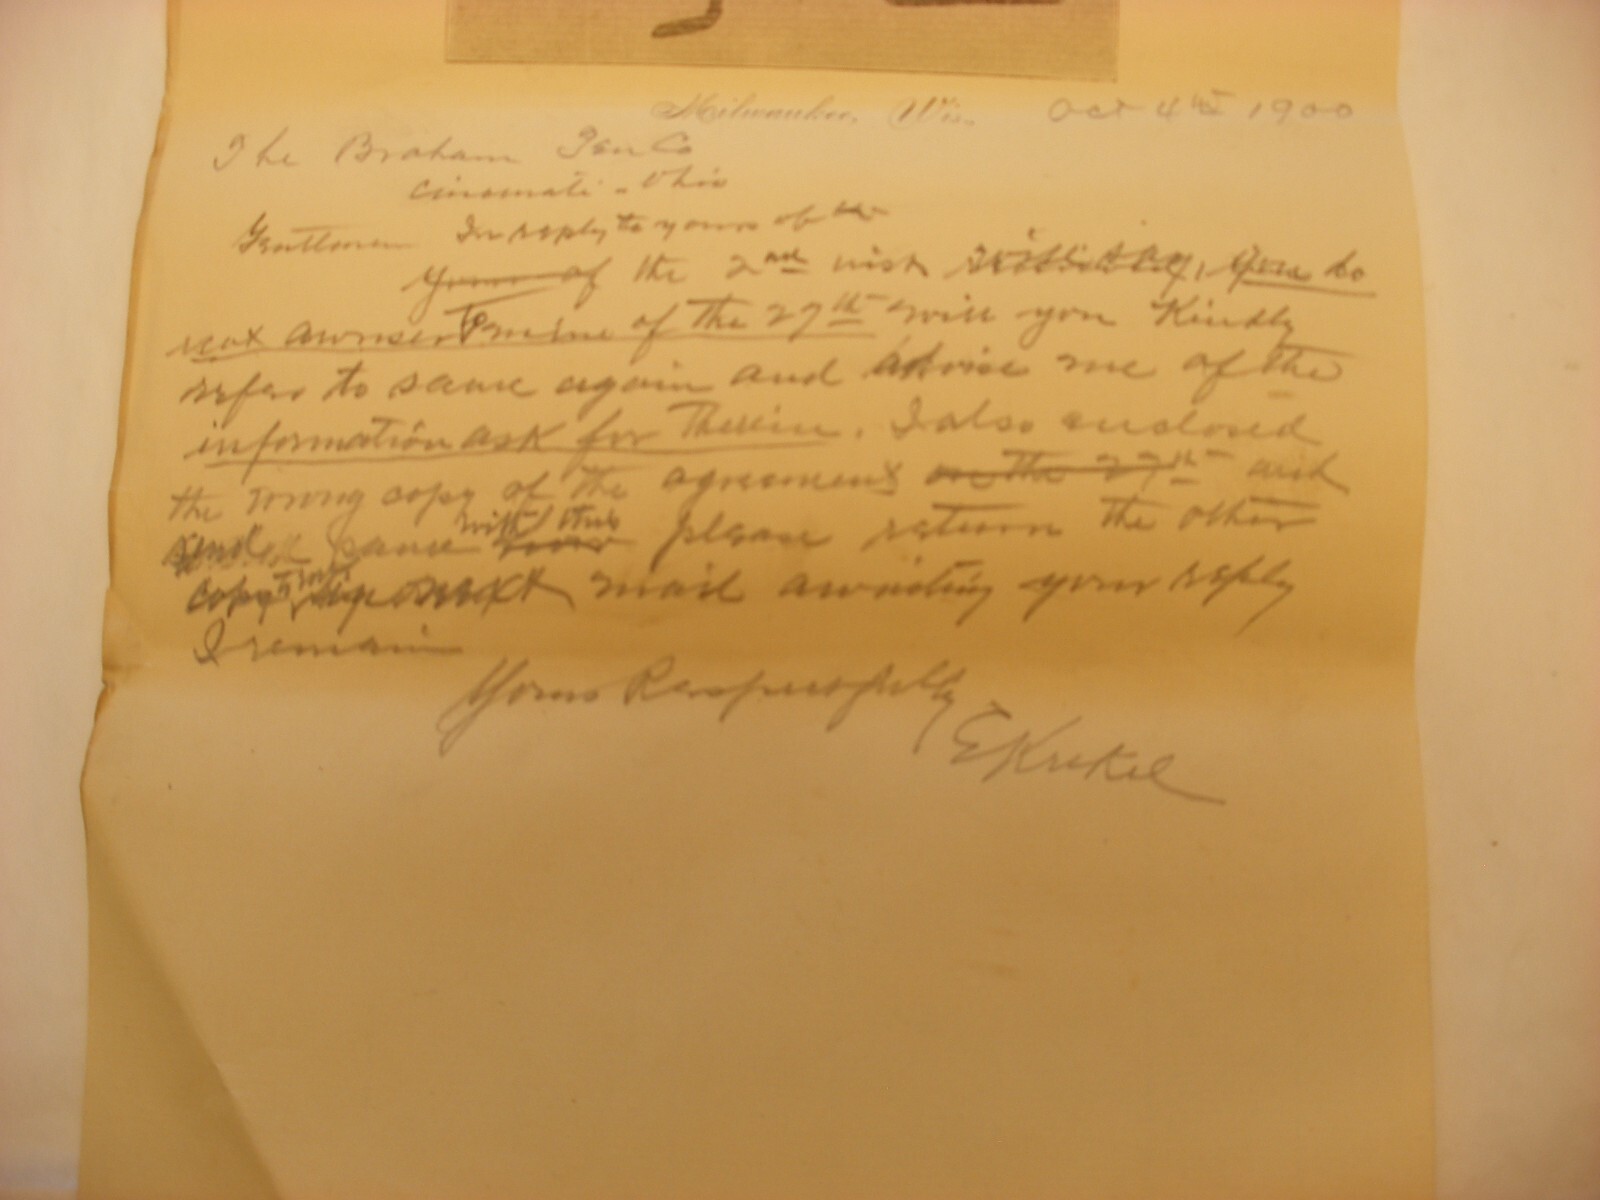 Milwaukee, Wis. Oct 4th 1900
The Braham Pen Co
Cincinnati - Ohio
Gentlemen In reply to yours of the
Yours of the 2nd inst you do
not awnser to mine of the 27th will you Kindly
refer to same again and advise me of the
information ask for Therein. I also enclosed
the wrong copy of the agreement on the 27th and
send same with this please return the other
copy next mail awaiting your reply
I remain
Yours Respectfully
E Krekel